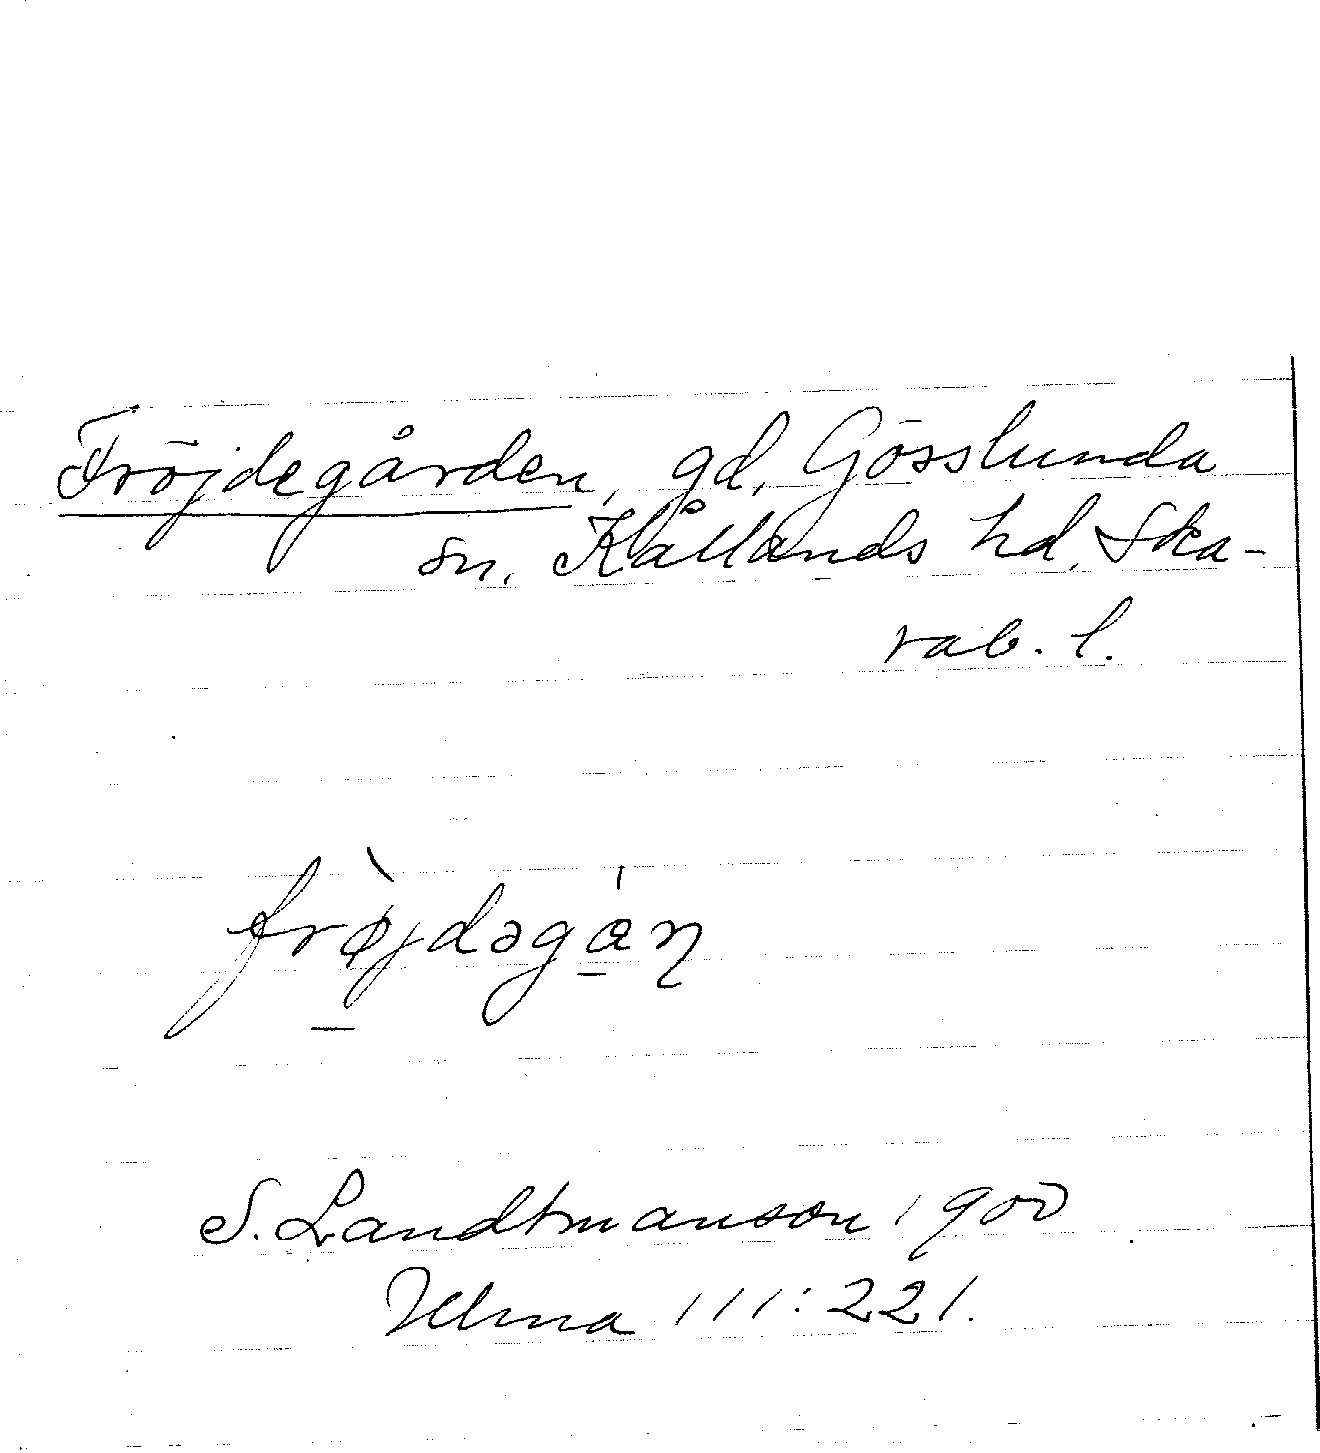 Fröjdegården, gd, Gösslunda
sn, Kållands hd, Ska-
rab. l.
frø̀jdəgán
S. Landtmanson 1900
Ulma 111:221.